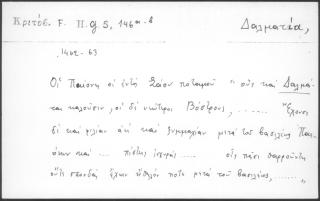 Κριτόβ. F. II. 9 5, 146 α-β
Δαλματία,
1462-63
Οἱ Παίονες οἱ ἐντὸς Σάου ποταμοῦ "οὓς καὶ Δαλμά-
τας καλοῦσιν, οἱ δὲ νεώτεροι Βόστρους, ....... Ἔχουσι
δὲ καὶ φιλίαν ἀεὶ καὶ ξυμμαχίαν μετὰ τοῦ βασιλέως Παι-
όνων καὶ ... πίστεις ἰσχυράς ...... οἷς πᾶσι θαρροῦντες
οὔτε σπονδὰς ἔχειν ἤθελόν ποτε μετὰ τοῦ βασιλέως, ....... "